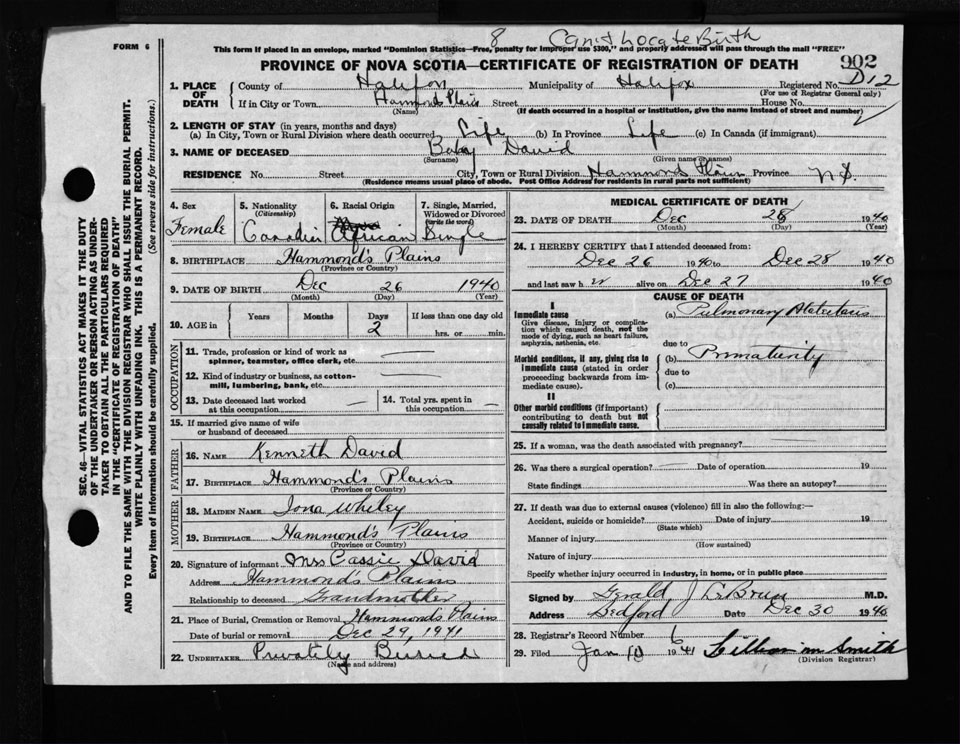 FORM 6
8 Can't Locate Birth
This form if placed in an envelope, marked "Dominion Statistics—Free, penalty for improper use $300," and properly addressed will pass through the mail "FREE"
PROVINCE OF NOVA SCOTIA—CERTIFICATE OF REGISTRATION OF DEATH
902
1. PLACE OF DEATH
County of Halifax Municipality of Halifax Registered No. D12
(For use of Registrar General only)
If in City or Town Hammonds Plains Street House No.
(Name) (If death occurred in a hospital or institution, give the name instead of street and number)
2. LENGTH OF STAY (in years, months and days)
(a) In City, Town or Rural Division where death occurred Life (b) In Province Life (c) In Canada (if immigrant)
3. NAME OF DECEASED Baby David
(Surname) (Given name or names)
RESIDENCE No. Street City, Town or Rural Division Hammonds Plain Province N.S.
(Residence means usual place of abode. Post Office Address for residents in rural parts not sufficient)
4. Sex Female
5. Nationality (Citizenship) Canadian
6. Racial Origin African
7. Single, Married, Widowed or Divorced (Write the word) Single
8. BIRTHPLACE Hammond's Plains
(Province or Country)
9. DATE OF BIRTH Dec 26 1940
(Month) (Day) (Year)
10. AGE in Years Months Days 2 If less than one day old hrs. or min.
OCCUPATION
11. Trade, profession or kind of work as spinner, teamster, office clerk, etc.
12. Kind of industry or business, as cotton-mill, lumbering, bank, etc.
13. Date deceased last worked at this occupation
14. Total yrs. spent in this occupation
15. If married give name of wife or husband of deceased
FATHER
16. Name Kenneth David
17. Birthplace Hammond's Plains
(Province or Country)
MOTHER
18. Maiden Name Iona Whiley
19. Birthplace Hammond's Plains
(Province or Country)
20. Signature of informant Mrs Cassie David
Address Hammond's Plains
Relationship to deceased Grandmother
21. Place of Burial, Cremation or Removal Hammond's Plains
Date of burial or removal Dec 29, 1941
22. Undertaker Privately Buried
(Name and address)
MEDICAL CERTIFICATE OF DEATH
23. DATE OF DEATH Dec 28 1940
(Month) (Day) (Year)
24. I HEREBY CERTIFY that I attended deceased from:
Dec 26 1940 to Dec 28 1940
and last saw h alive on Dec 27 1940
CAUSE OF DEATH
I
Immediate cause
Give disease, injury or complication which caused death, not the mode of dying, such as heart failure, asphyxia, asthenia, etc.
(a) Pulmonary
due to
Morbid conditions, if any, giving rise to immediate cause (stated in order proceeding backwards from immediate cause).
(b) Prematurity
due to
(c)
II
Other morbid conditions (if important) contributing to death but not causally related to immediate cause.
25. If a woman, was the death associated with pregnancy?
26. Was there a surgical operation? Date of operation 19
State findings Was there an autopsy?
27. If death was due to external causes (violence) fill in also the following:—
Accident, suicide or homicide? Date of injury 19
(State which)
Manner of injury
(How sustained)
Nature of injury
Specify whether injury occurred in industry, in home, or in public place
Signed by Gerald J LeBrun M.D.
Address Bedford Date Dec 30 1940
28. Registrar's Record Number 6
29. Filed Jan 10 1941 Lillian M Smith
(Division Registrar)
SEC. 46—VITAL STATISTICS ACT MAKES IT THE DUTY
OF THE UNDERTAKER OR PERSON ACTING AS UNDER-
TAKER TO OBTAIN ALL THE PARTICULARS REQUIRED
IN THE "CERTIFICATE OF REGISTRATION OF DEATH"
AND TO FILE THE SAME WITH THE DIVISION REGISTRAR WHO SHALL ISSUE THE BURIAL PERMIT.
WRITE PLAINLY WITH UNFADING INK. THIS IS A PERMANENT RECORD.
Every item of Information should be carefully supplied. (See reverse side for instructions.)